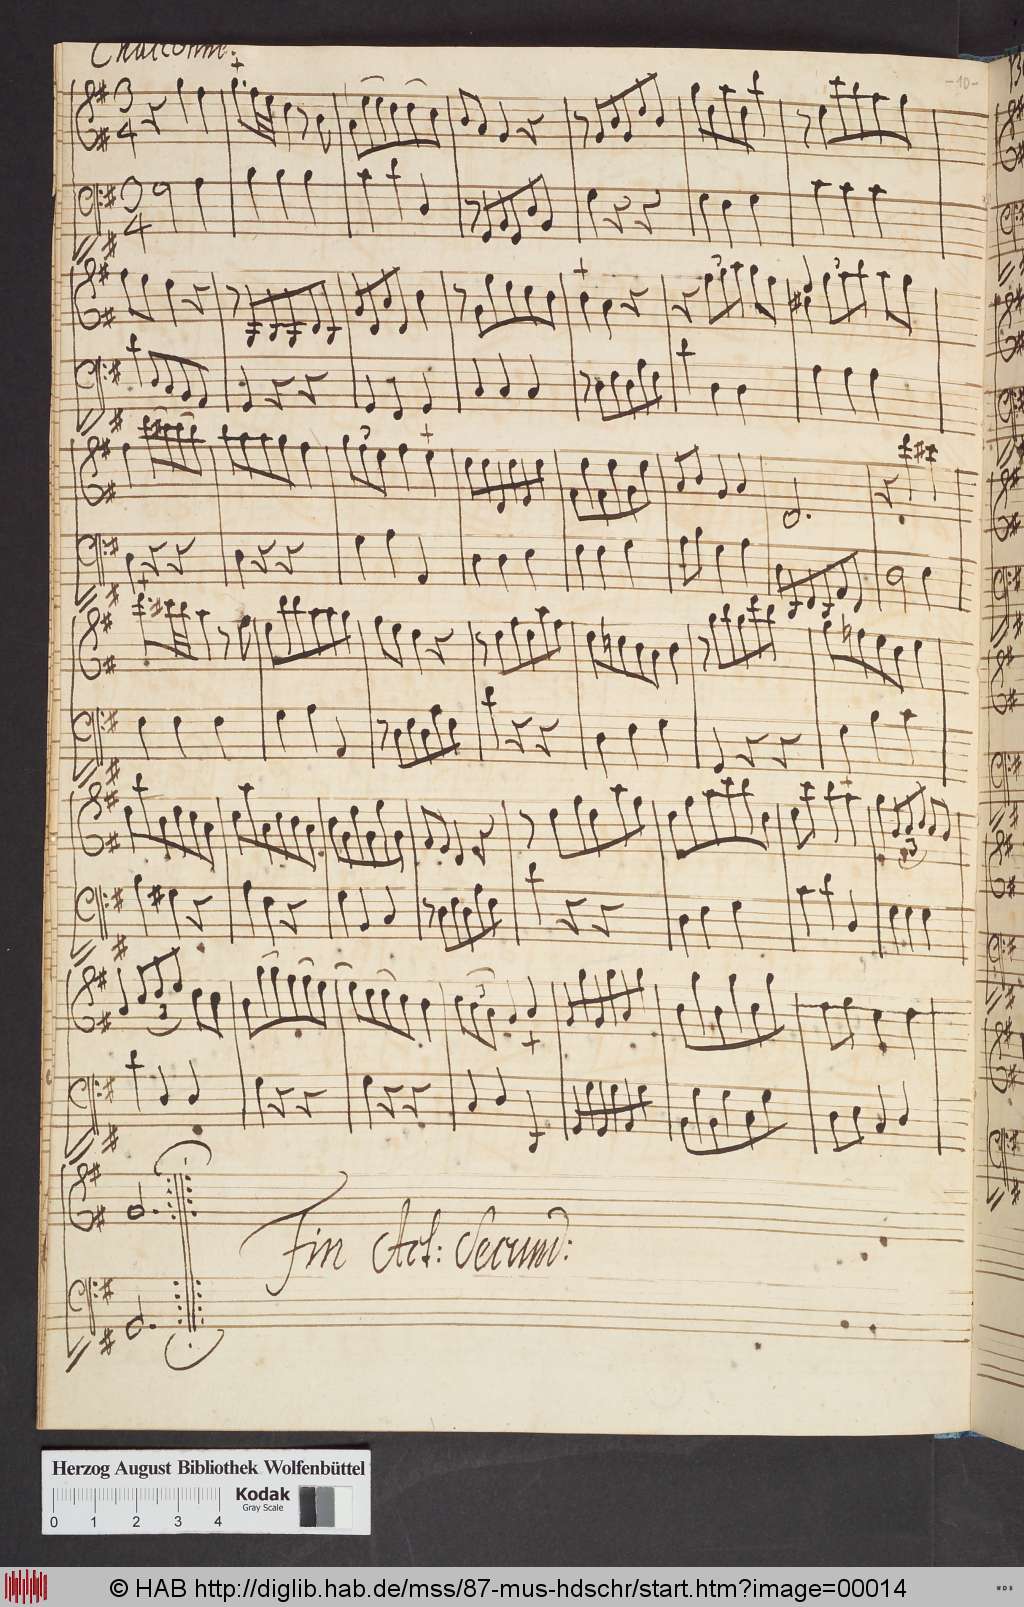 Chaconne.
-10-
3
4
3
4
3
3
3
3
3
3
Fin Act: Secund:
Herzog August Bibliothek Wolfenbüttel
Kodak
Gray Scale
0 1 2 3 4
© HAB http://diglib.hab.de/mss/87-mus-hdschr/start.htm?image=00014